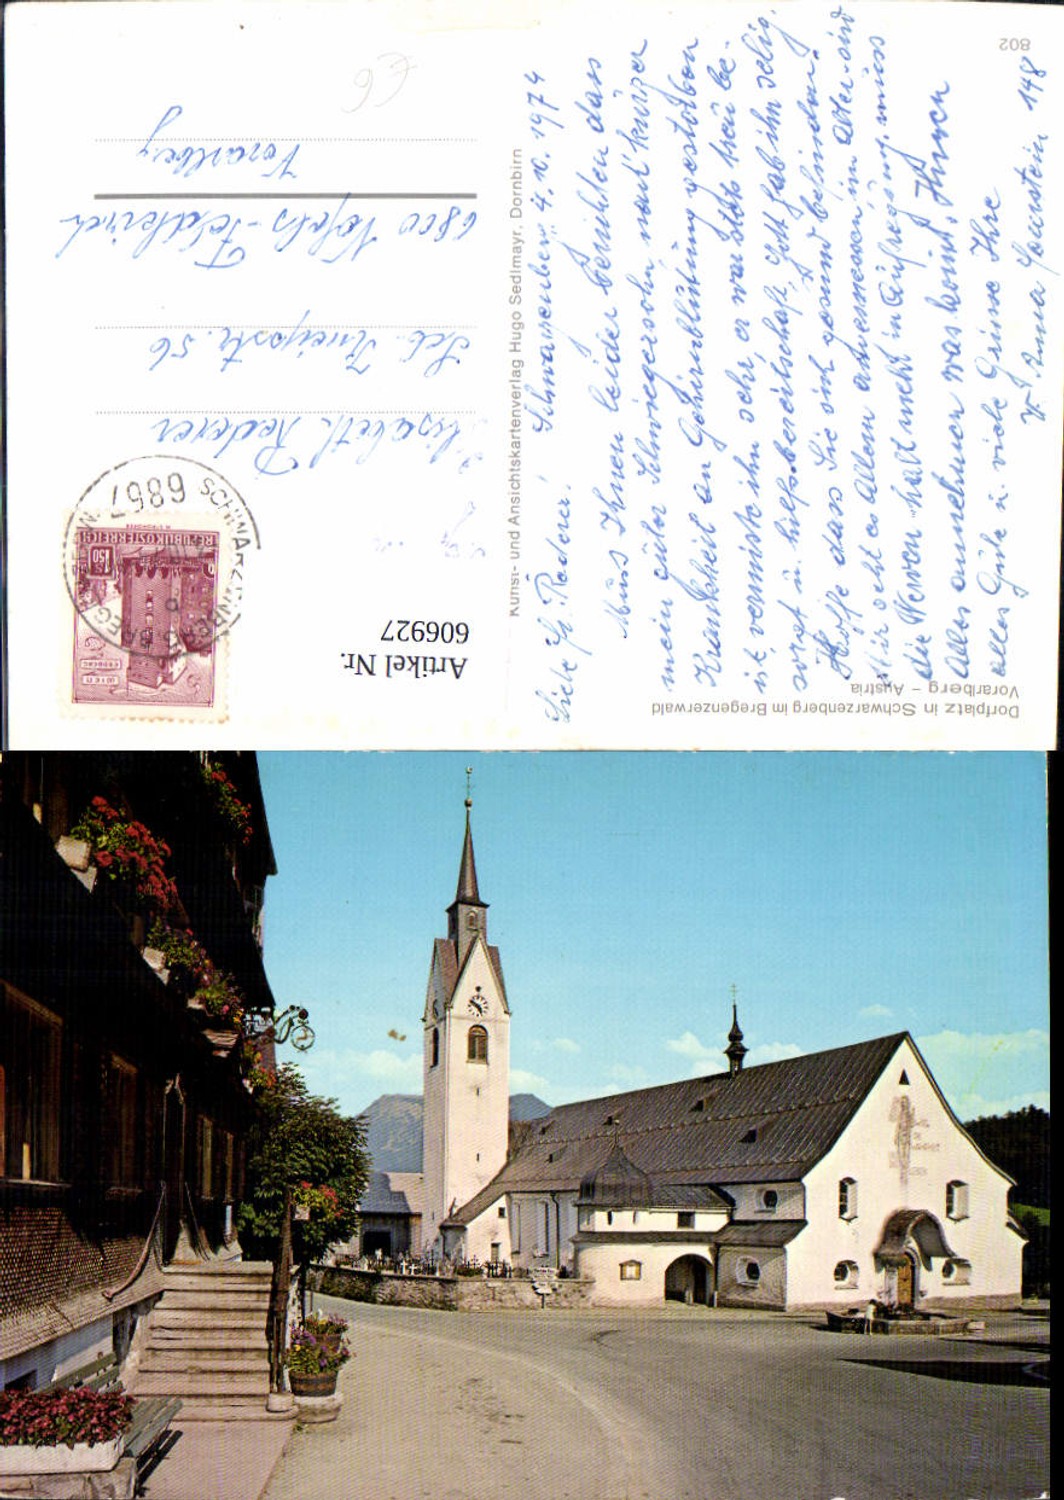 802
Dorfplatz in Schwarzenberg im Bregenzerwald
Vorarlberg – Austria
Kunst- und Ansichtskartenverlag Hugo Sedlmayr, Dornbirn
Schwarzenberg 4.10.1974
Liebe Fr. Rederer!
Muss Ihnen leider berichten dass
mein guter Schwiegersohn, nach kurzer
Krankheit an Gehirnblutung gestorben
ist, vermisste ihn sehr, er war stets treu be-
sorgt u. hilfsbereitschaft, Gott hab ihn selig.
Hoffe dass Sie sich gesund befinden.
Mir geht es Allem angemessen, im Alter sind
die Nerven halt nicht in Aufregung, muss
Alles annehmen was kommt, Ihnen
alles Gute u. viele Grüsse Ihre
Anna 148
Elisabeth Rederer
56
6800 Feldkirch
Vorarlberg
€6
REPUBLIK ÖSTERREICH
1.50
WIEN
ERDBERG
6867 SCHWARZENBERG
Artikel Nr.
606927